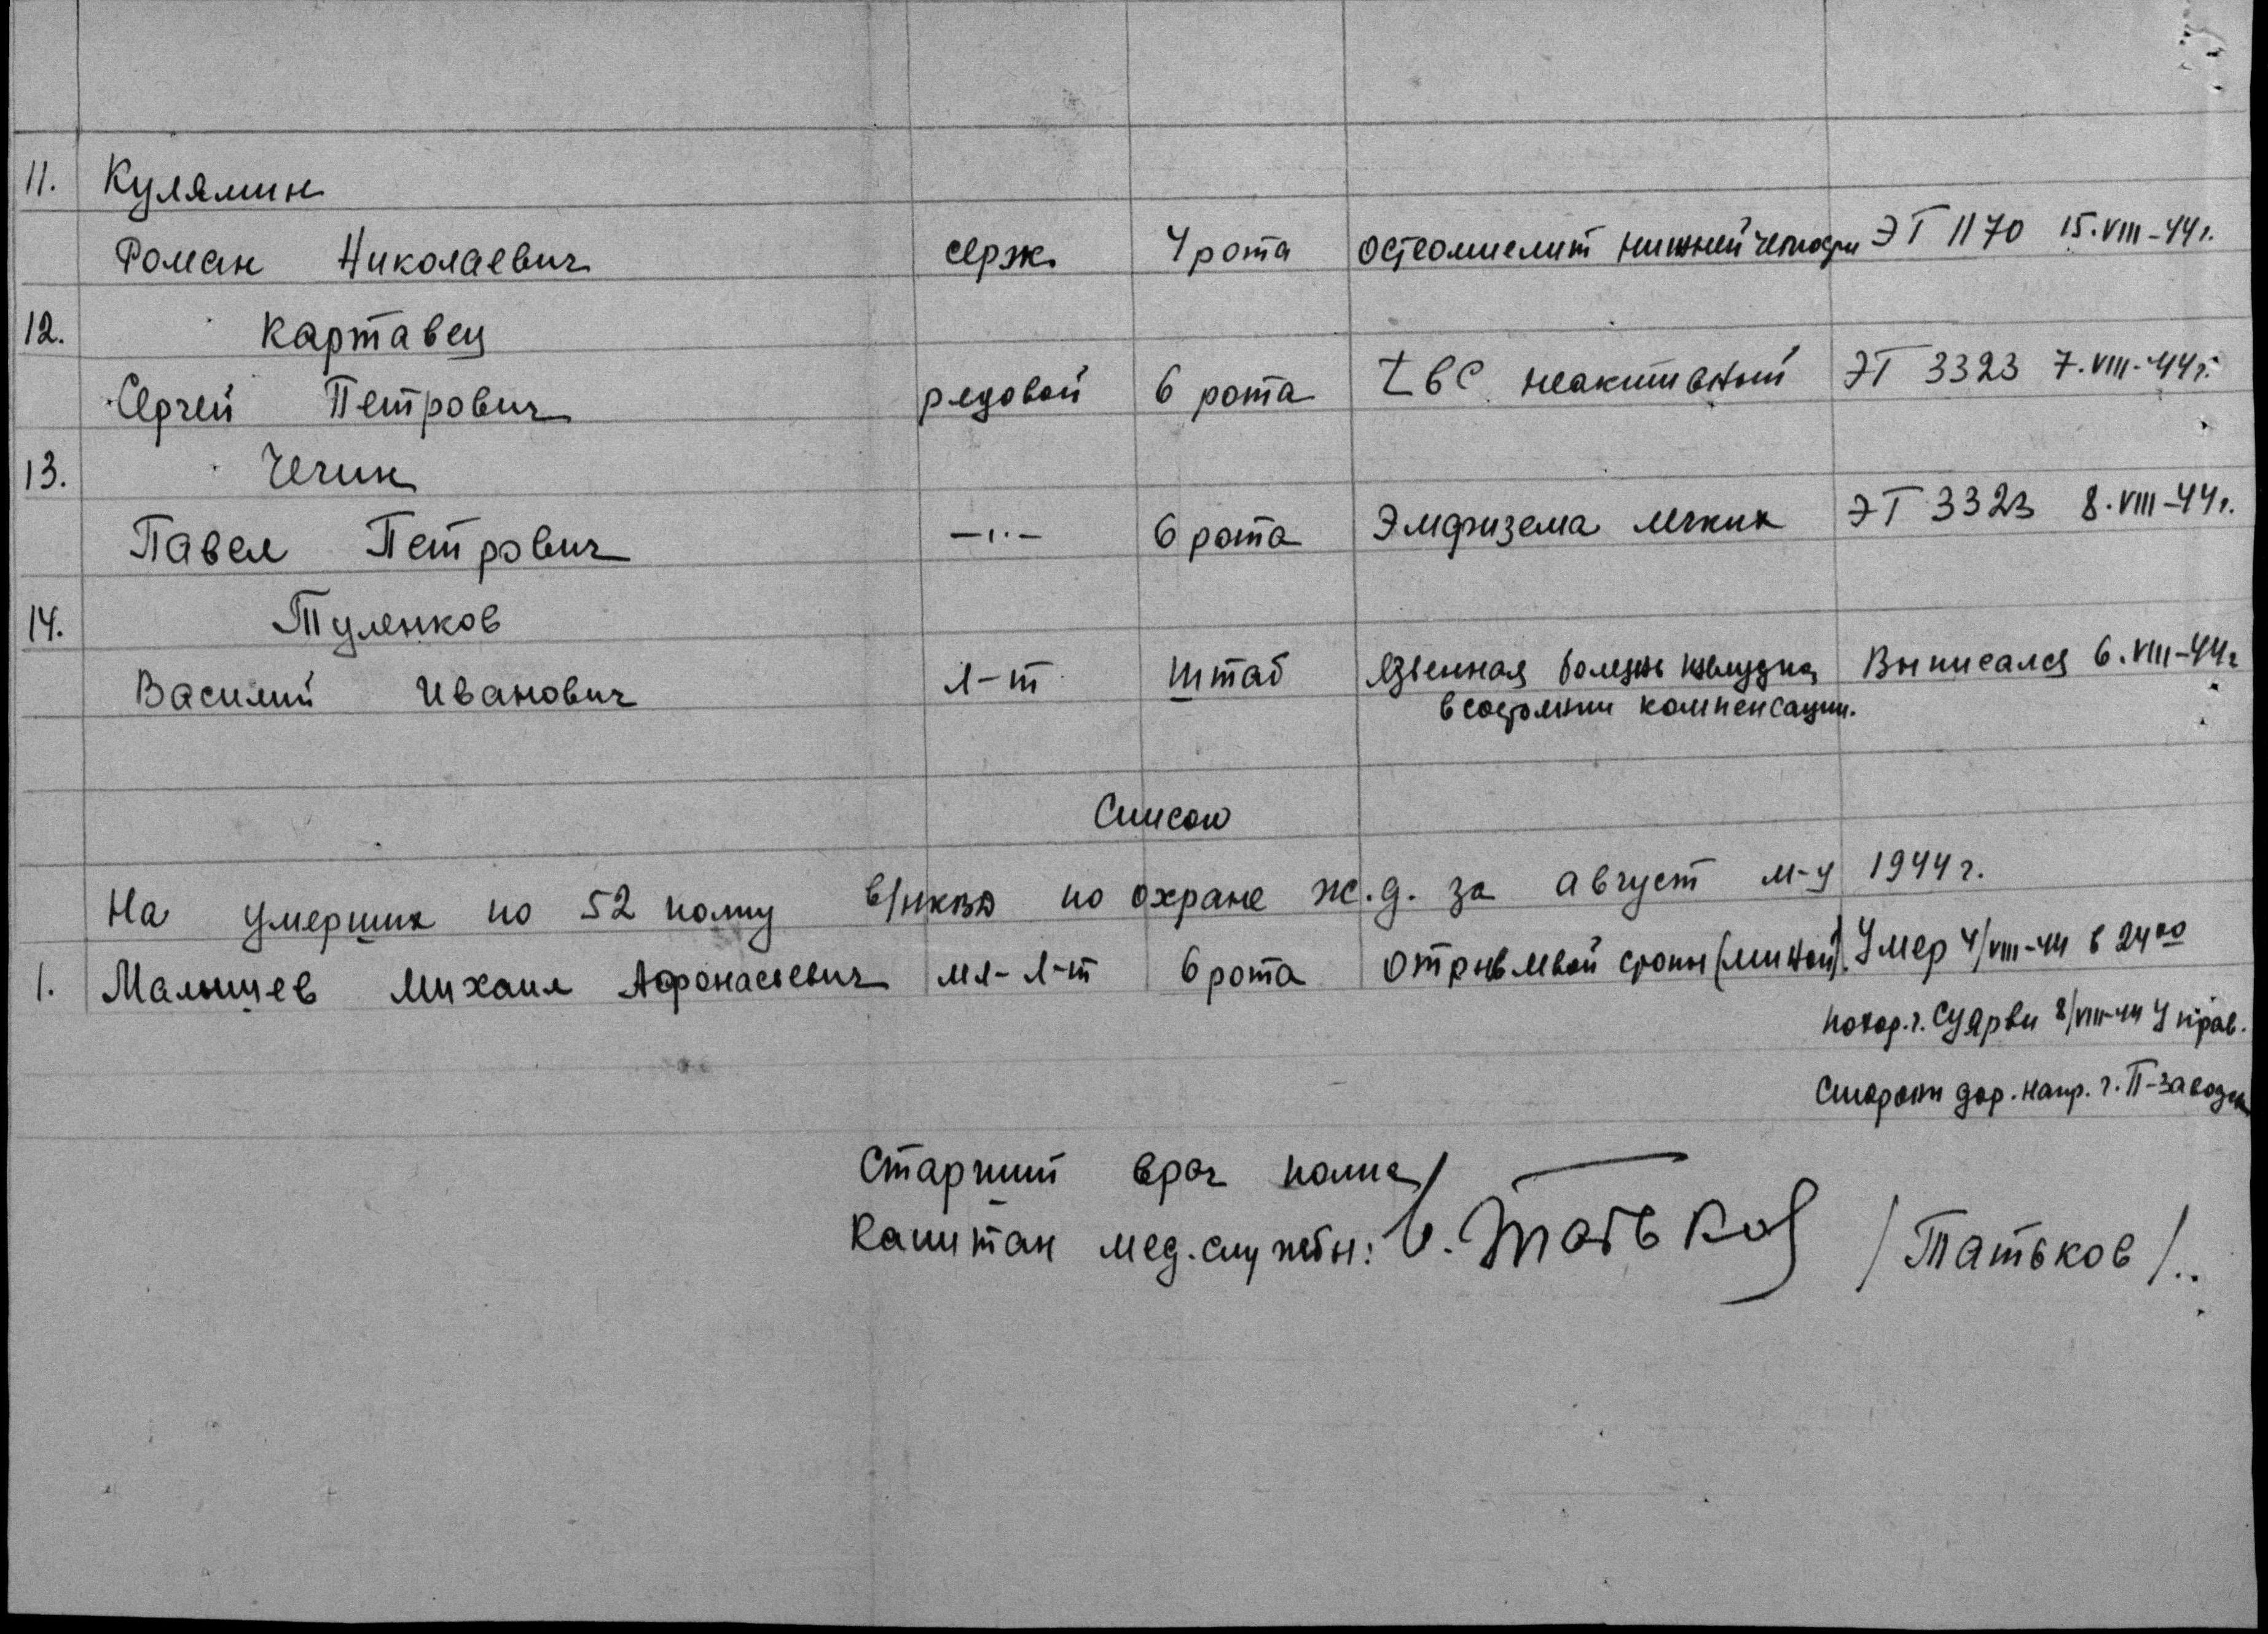 11. Кулямин
Роман Николаевич серж. 4 рота Остеомиелит нижней челюсти ЭТ 1170 15.VIII-44г.
12. Картавец
Сергей Петрович рядовой 6 рота tвс неактивный ЭТ 3323 7.VIII-44г.
13. Чечин
Павел Петрович —··— 6 рота Эмфизема легких ЭТ 3323 8.VIII-44г.
14. Туленков
Василий Иванович л-т штаб Язвенная болезнь желудка Выписался 6.VIII-44г
в состоянии компенсации.
Список
На умерших по 52 полку в/нквд по охране ж.д. за август м-ц 1944г.
1. Малышев Михаил Афонасьевич мл-л-т 6 рота Отрыв левой стопы (миной). Умер 4/VIII-44 в 24⁰⁰
похор. г. Суярви 8/VIII-44 у прав.
стороны дор. напр. г. П-заводск
Старший врач полка
Капитан мед. службы: Татьков /Татьков/..